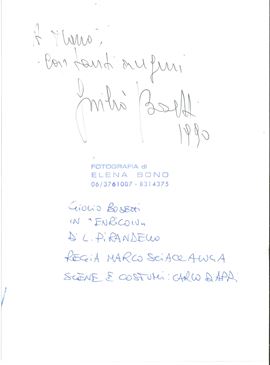 con tanti auguri
Giulio Bosetti
1990
FOTOGRAFIA di
ELENA BONO
06/3761007 - 8314375
GIULIO BOSETTI
IN "ENRICO IV"
DI L. PIRANDELLO
REGIA MARCO SCIACCALUGA
SCENE E COSTUMI: CARLO DIAPPI